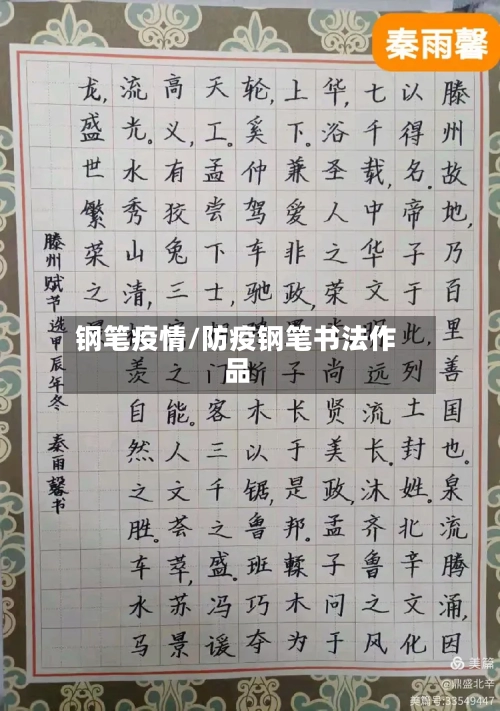 秦雨馨
滕州故地,乃百里善国也。泉流腾涌,因
以得名。帝子于此,列土封姓。北辛文化
七千载,中华文远流长。沐齐鲁之风
华,浴圣人之荣尚贤美政,孟子问于
上下。兼爱非政,子长于是邦。輮木为
轮,奚仲驾车,驰断木以锯,鲁班巧夺
天工。孟尝下士,门客三千之盛。冯谖
高义,有狡兔三之能。人文荟萃,苏景
流光。水秀山清,羡自然之胜。车水马
龙,盛世繁荣之
滕州赋节选甲辰年冬 秦雨馨书
钢笔疫情/防疫钢笔书法作
品
美篇
@鼎盛北辛
美篇号:33549447